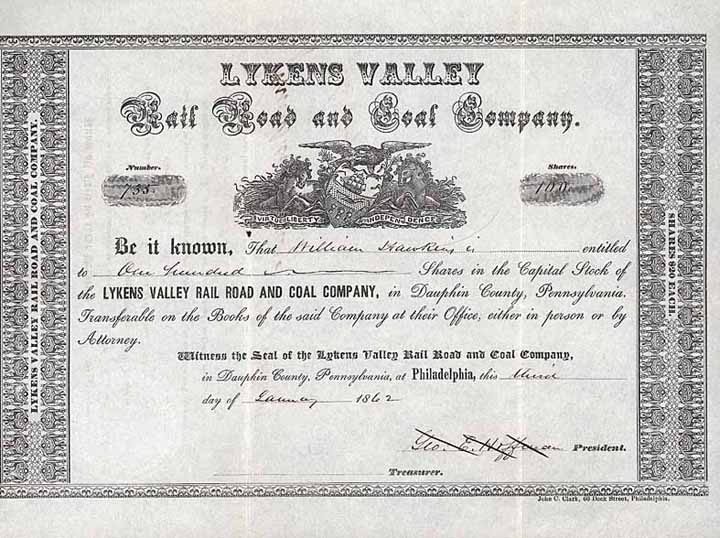 LYKENS VALLEY
Rail Road and Coal Company.
Number.
755.
Shares.
100
VIRTUE LIBERTY INDEPENDENCE
Be it known, That William Hawkins is entitled
to One hundred Shares in the Capital Stock of
the LYKENS VALLEY RAIL ROAD AND COAL COMPANY, in Dauphin County, Pennsylvania.
Transferable on the Books of the said Company at their Office, either in person or by
Attorney.
Witness the Seal of the Lykens Valley Rail Road and Coal Company,
in Dauphin County, Pennsylvania, at Philadelphia, this third
day of January 1862
Geo. E. Hoffman President.
Treasurer.
John C. Clark, 60 Dock Street, Philadelphia.
LYKENS VALLEY RAIL ROAD AND COAL COMPANY.
SHARES $20 EACH.